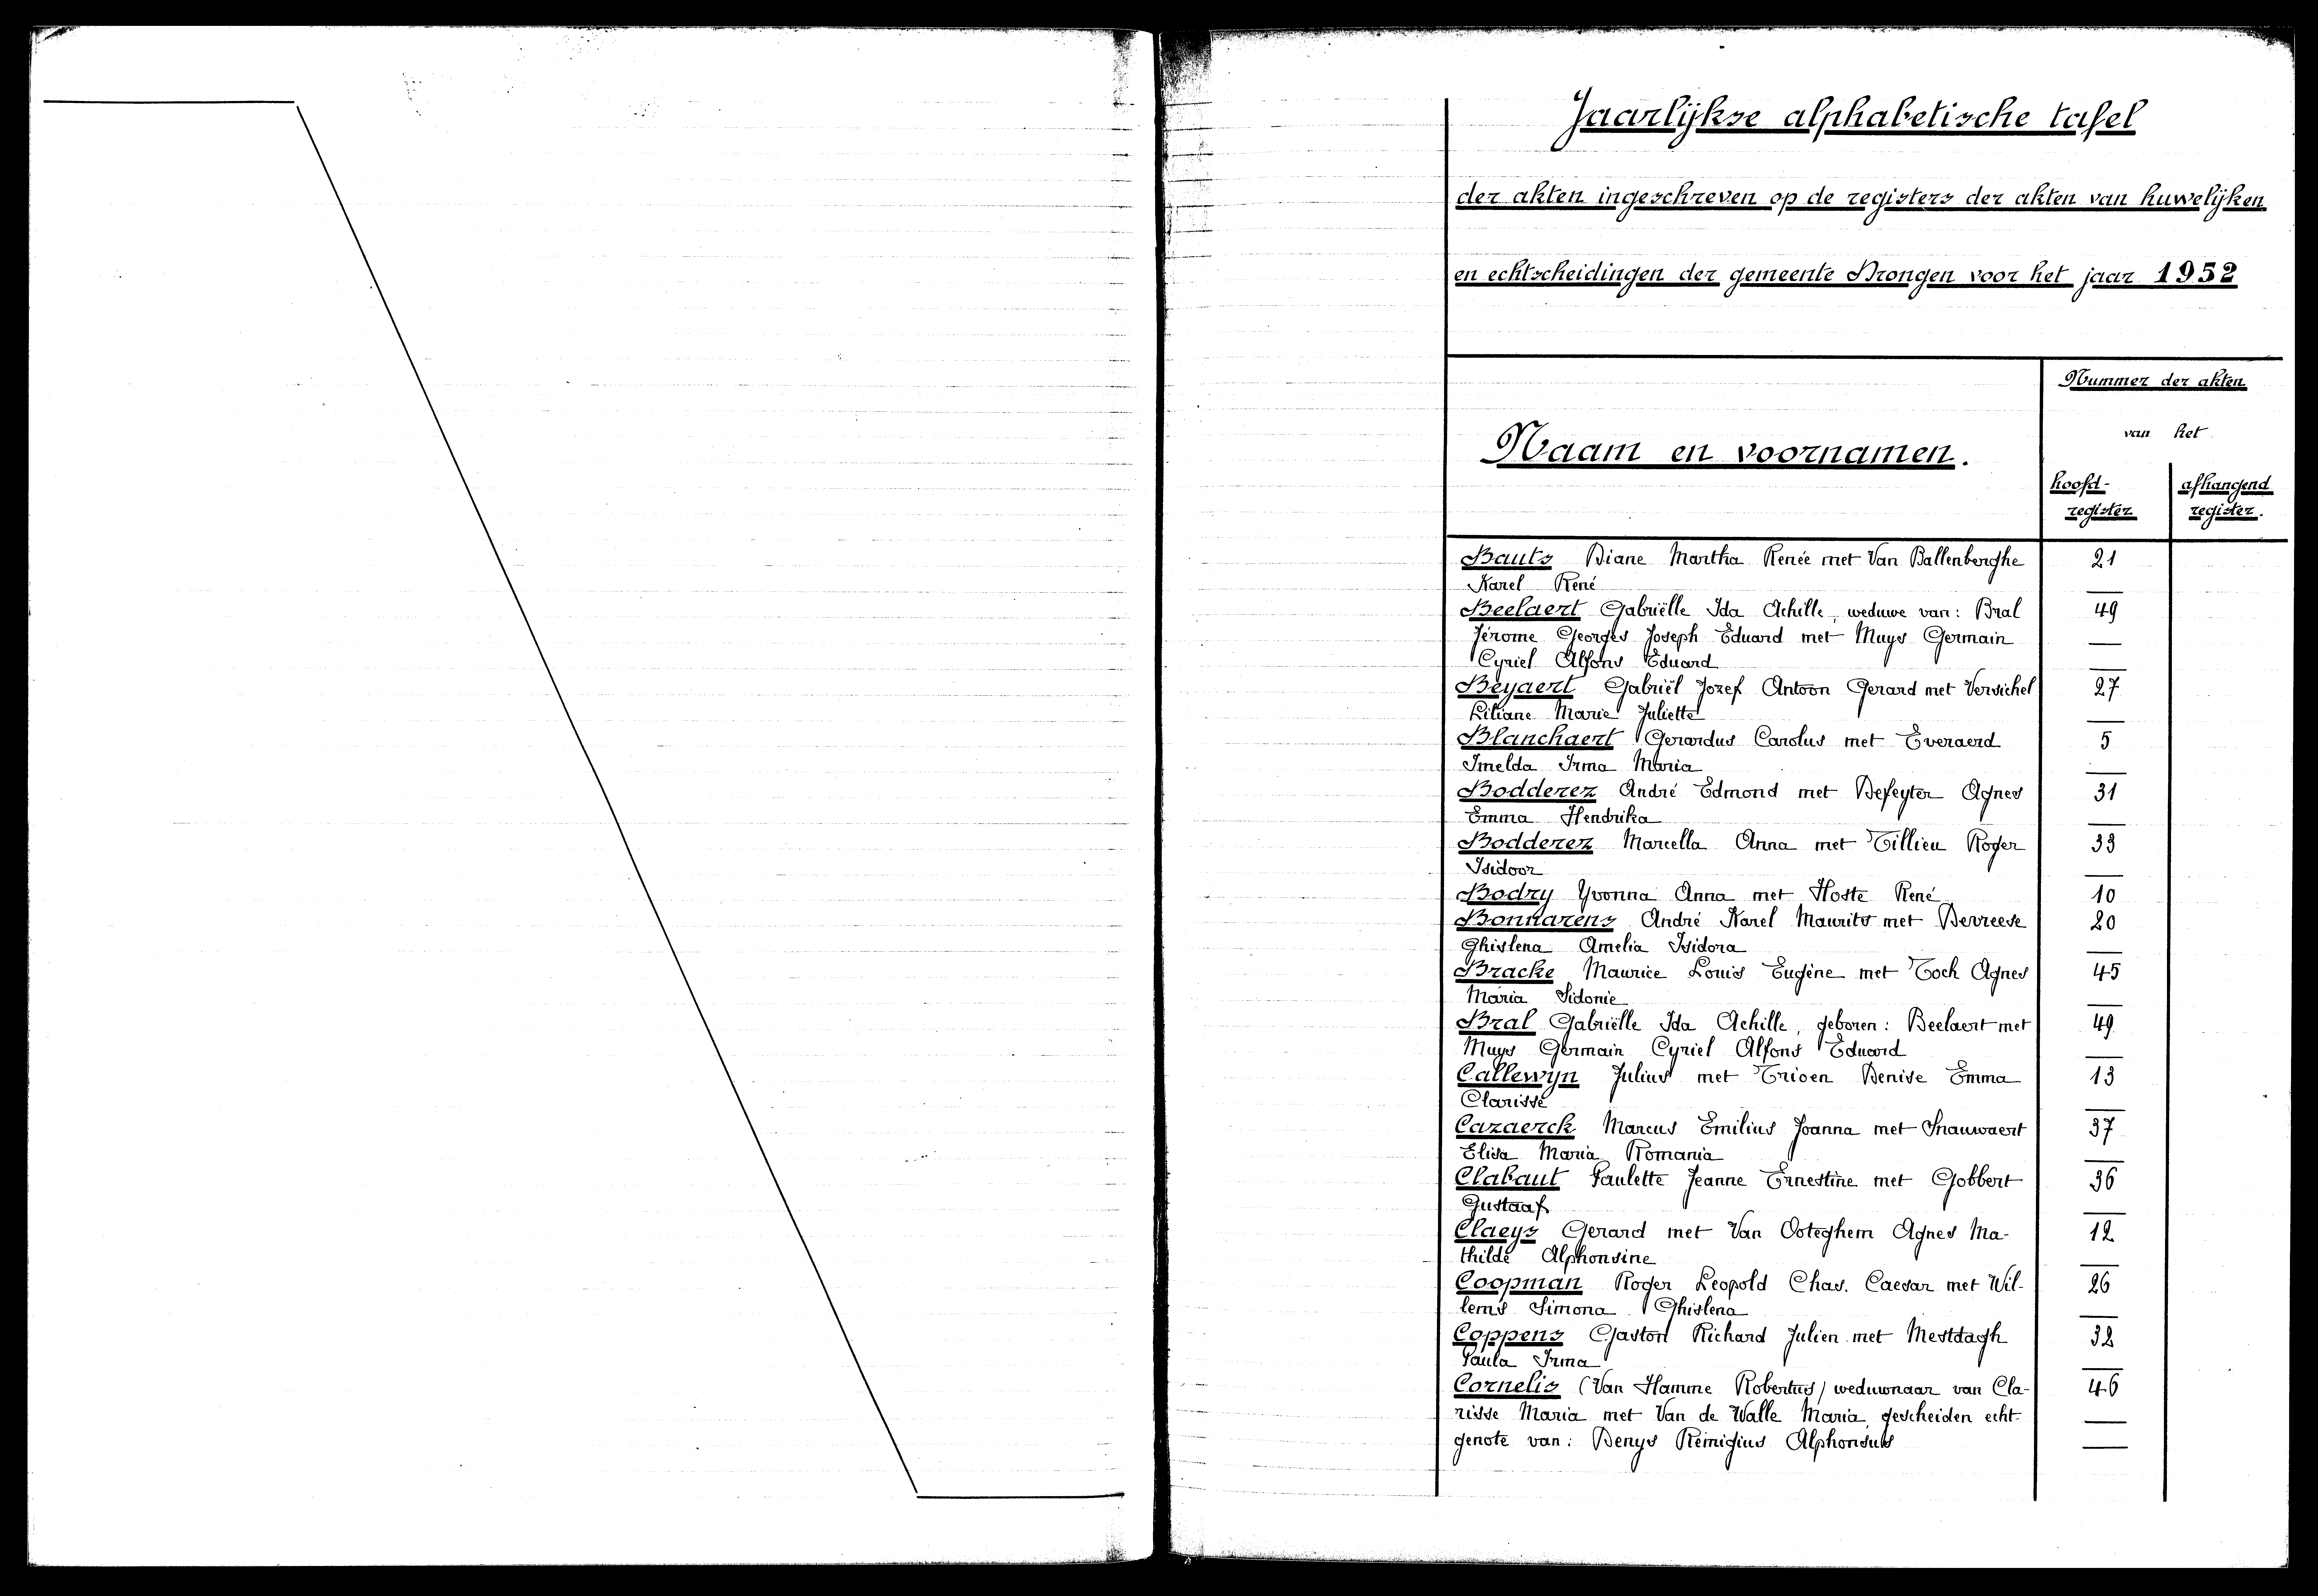 Jaarlijkse alphabetische tafel
der akten ingeschreven op de registers der akten van huwelijken
en echtscheidingen der gemeente Drongen voor het jaar 1952
Nummer der akten
van het
Naam en voornamen.
hoofd- afhangend
register register.
Bauts Diane Martha Renée met Van Ballenberghe 21
Karel René —
Beelaert Gabriëlle Ida Achille, weduwe van: Bral 49
Jérome Georges Joseph Eduard met Muys Germain —
Cyriel Alfons Eduard —
Beyaert Gabriël Jozef Antoon Gerard met Versichel 27
Liliane Marie Juliette —
Blanchaert Gerardus Carolus met Everaerd 5
Imelda Irma Maria —
Bodderez André Edmond met Defeyter Agnes 31
Emma Hendrika —
Bodderez Marcella Anna met Tillieu Roger 33
Isidoor —
Bodry Yvonna Anna met Hoste René 10
Bonnarens André Karel Maurits met Devreese 20
Ghislena Amelia Isidora —
Bracke Maurice Louis Eugène met Toch Agnes 45
Maria Sidonie —
Bral Gabriëlle Ida Achille, geboren: Beelaert met 49
Muys Germain Cyriel Alfons Eduard —
Callewyn Julius met Trioen Denise Emma 13
Clarisse —
Cazaerck Marcus Emilius Joanna met Snauwaert 37
Elisa Maria Romania —
Clabaut Paulette Jeanne Ernestine met Gobbert 36
Gustaaf —
Claeys Gerard met Van Ooteghem Agnes Ma- 12
thilde Alphonsine —
Coopman Roger Leopold Chas. Caesar met Wil- 26
lems Simona Ghislena —
Coppens Gaston Richard Julien met Mestdagh 32
Paula Irma —
Cornelis (Van Hamme Robertus) weduwnaar van Cla- 46
risse Maria met Van de Walle Maria, gescheiden echt- —
genote van: Denys Remigius Alphonsus —